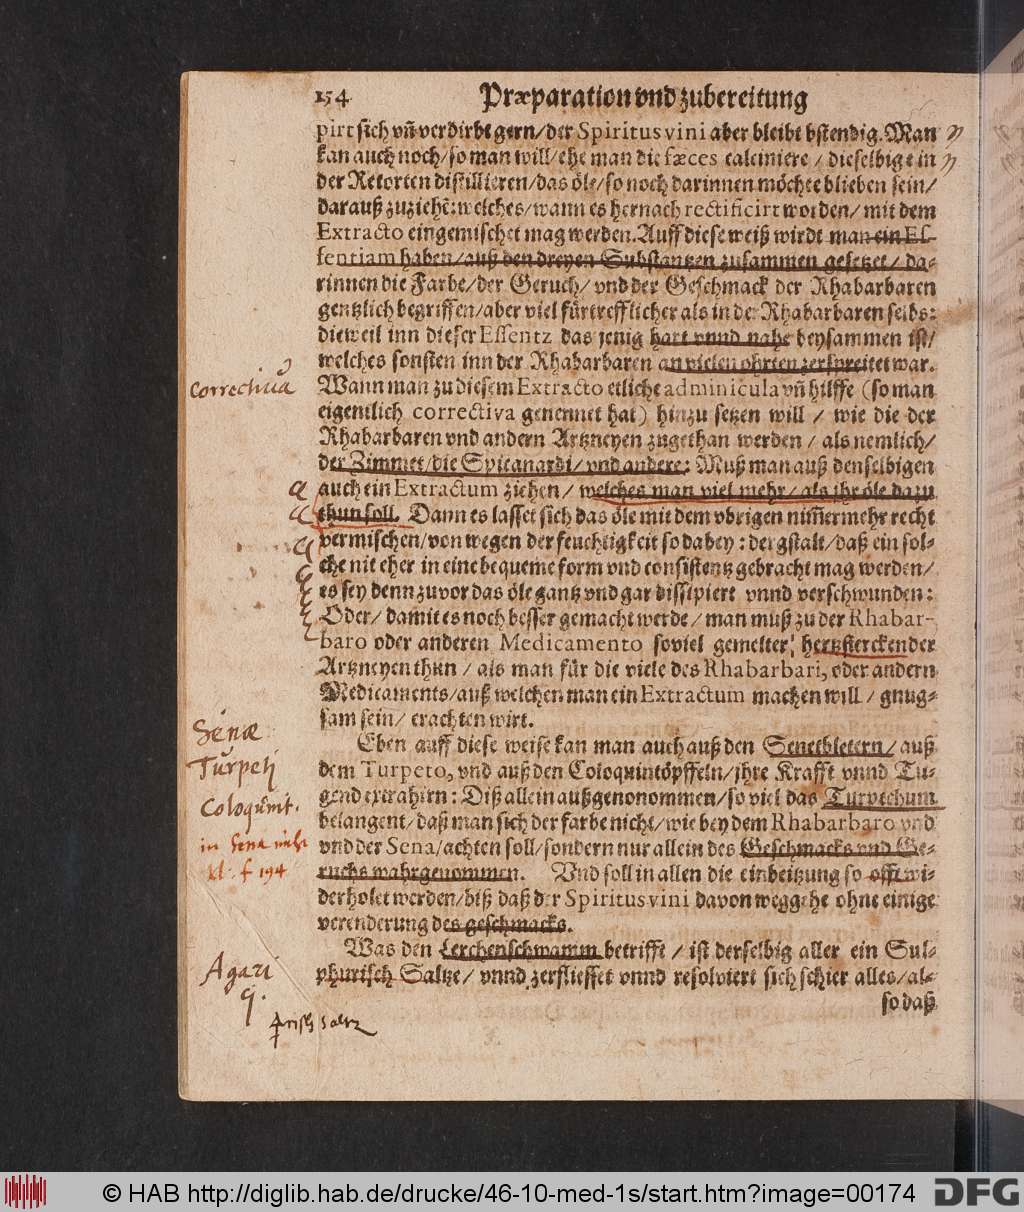 154 Præparation vnd zubereitung
pirt sich vñ verdirbt gern/der Spiritus vini aber bleibt bstendig. Man
kan auch noch/so man will/ehe man die fæces calciniere/dieselbige in
der Retorten distillieren/das öle/so noch darinnen möchte blieben sein/
darauß zuziehẽ: welches/wann es hernach rectificirt worden/mit dem
Extracto eingemischet mag werden. Auff diese weiß wirdt man ein Es-
sentiam haben/auß den dreyen Substantzen zusammen gesetzet/da-
rinnen die Farbe/der Geruch/vnd der Geschmack der Rhabarbaren
gentzlich begriffen/aber viel fürtrefflicher als in der Rhabarbaren selbs:
dieweil inn dieser Essentz das jenig hart vnnd nahe beysammen ist/
welches sonsten inn der Rhabarbaren an vielen ohrten zerspreitet war.
Correctiva
Wann man zu diesem Extracto etliche adminicula vñ hilffe (so man
eigentlich correctiva genennet hat) hinzu setzen will/wie die der
Rhabarbaren vnd andern Artzneyen zugethan werden/als nemlich/
der Zimmet/die Spicanardi/vnd andere: Muß man auß denselbigen
auch ein Extractum ziehen/welches man viel mehr/als jhr öle dazu
thun soll. Dann es lasset sich das öle mit dem vbrigen nim̃ermehr recht
vermischen/von wegen der feuchtigkeit so dabey: dergstalt/daß ein sol-
che nit eher in eine bequeme form vnd consistentz gebracht mag werden/
es sey denn zuvor das öle gantz vnd gar dissipiert vnnd verschwunden:
Oder/damit es noch besser gemacht werde/man muß zu der Rhabar-
baro oder anderen Medicamento soviel gemelter hertzsterckender
Artzneyen thun/als man für die viele des Rhabarbari, oder andern
Medicaments/auß welchen man ein Extractum machen will/gnug-
sam sein/erachten wirt.
Senæ
Eben auff diese weise kan man auch auß den Senetbletern/auß
Turpeti
dem Turpeto, vnd auß den Coloquintöpffeln/jhre Krafft vnnd Tu-
Coloquint.
gend extrahirn: Diß allein außgenonommen/so viel das Turpethum
belangent/daß man sich der farbe nicht/wie bey dem Rhabarbaro vnd
in Sena
vnd der Sena/achten soll/sondern nur allein des Geschmacks vnd Ge-
f 194
ruchs wahrgenommen. Vnd soll in allen die einbeitzung so offt wi-
derholet werden/biß daß der Spiritus vini davon weggehe ohne einige
verenderung des geschmacks.
Agari
Was den Lerchenschwamm betrifft/ist derselbig aller ein Sul-
phurisch Saltze/vnnd zerfliesset vnnd resolviert sich schier alles/al-
so daß
© HAB http://diglib.hab.de/drucke/46-10-med-1s/start.htm?image=00174
DFG